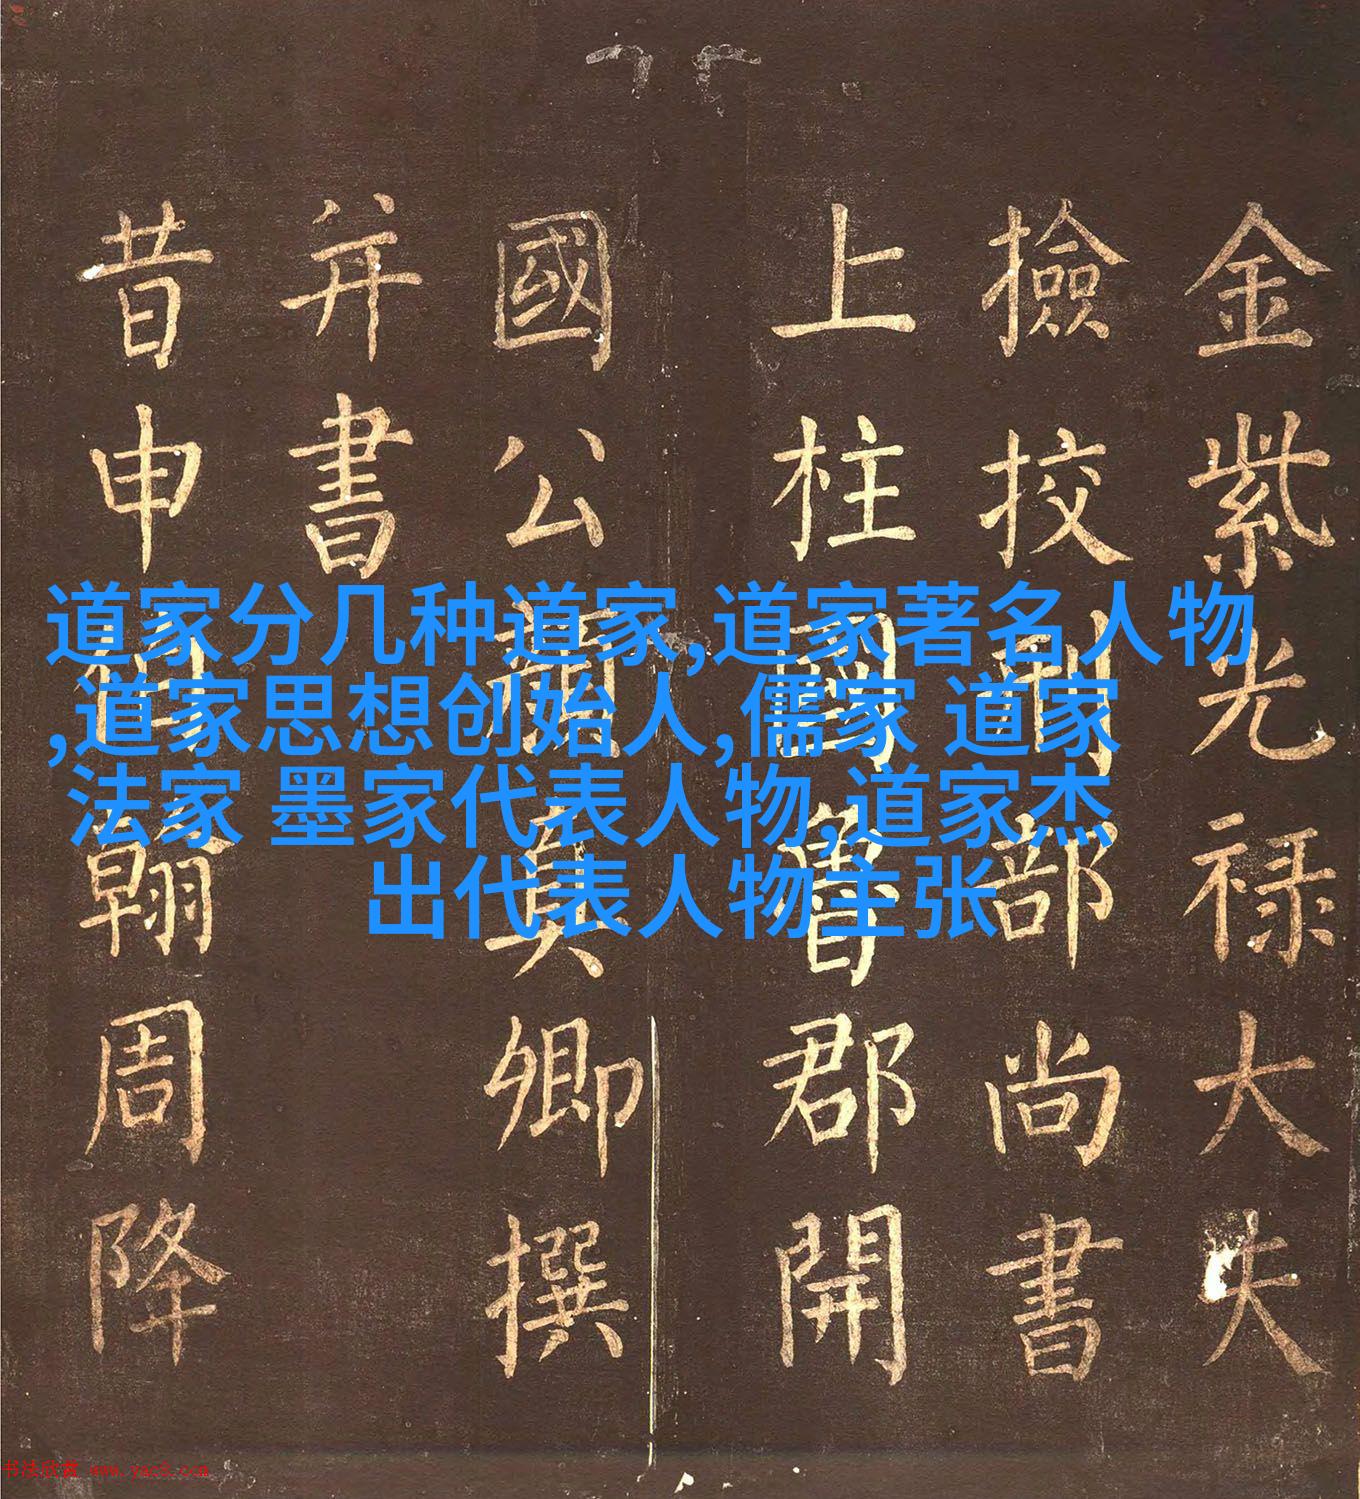 道家分几种道家,道家著名人物
,道家思想创始人,儒家 道家
法家 墨家代表人物,道家杰
出代表人物主张
金紫光禄大夫
撿挍刑部尚書
上柱國魯郡開
國公顏真卿撰
并書
昔申伯翰周降
书法欣赏 www.yac8.com